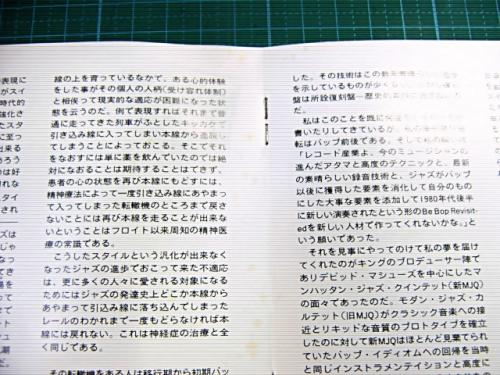 表現に
がスイ
時代的
強化さ
たスタ
に至っ
出来る
線の上を育っているなかで、ある心的体験
をした事がその個人の人柄(受け容れ体制)
と相俟って現実的な適応が困難になった状
態を云うのだ。例で表現すればそれまで普
通に走ってきた列車がふとしたキッカケで
引き込み線に入ってしまい本線から
してしまうことによっておこる。そこでそれ
をなおすには単に薬を飲んでいたのでは絶
対になおることは期待することはできず、
患者の心の状態を再び本線にもどすには、
精神療法によって一度引き込み線にあやまっ
て入ってしまった転轍機のところまで戻さ
ないことには再び本線を走ることが出来な
いということはフロイト以来周知の精神医
療の常識である。
こうしたスタイルという汎化が出来なく
なったジャズの進歩でおこって来た不適応
は、更に多くの人々に愛される対象になる
ためにはジャズの発達史上どこか本線から
あやまって引込み線に落ち込んでしまった
レールのわかれまで一度もどらなければ本
線には戻れない。これは神経症の治療と全
く同じである。
その転轍機をある人は移行期から初期バッ
した。その技術はこの
を示しているものが少
盤は所詮復刻盤―歴史的
私はこのことを既に何
書いたりしてきているが、私の
転はバップ前後である。そして私の
「レコード産業よ、今のミュージシャンの
進んだアタマと高度のテクニックと、最新
の素晴らしい録音技術と、ジャズがバップ
以後に獲得した要素を消化して自分のもの
にした大事な要素を添加して1980年代後半
に新しい演奏されたという形のBe Bop Revisit-
edを新しい人材で作ってくれないかな。」と
いう願いであった。
それを見事にやってのけて私の夢を届け
てくれたのがキングのプロデューサー陣で
ありデビッド・マシューズを中心にしたマ
ンハッタン・ジャズ・クインテット(新MJQ)
の面々であったのだ。モダン・ジャズ・カ
ルテット(旧MJQ)がクラシック音楽への接
近とリキッドな音質のプロトタイプを確立
したのに対して新MJQはほとんど見棄てられ
ていたバップ・イディオムへの回帰を当時
と同じインストラメンテイションと高度に